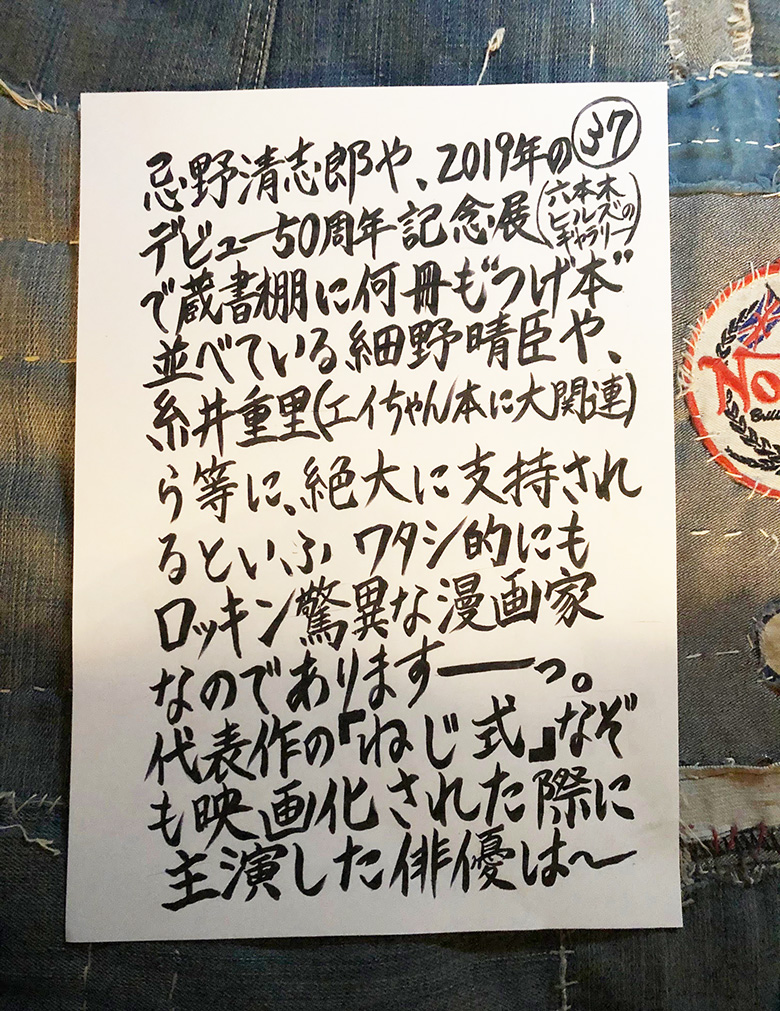 ㊲
忌野清志郎や、2019年の
デビュー50周年記念展(六本木ヒルズのギャラリー)
で蔵書棚に何冊も“つげ本”
並べている細野晴臣や、
糸井重里(エイちゃん本に大関連)
ら等に、絶大に支持され
るといふ ワタシ的にも
ロッキン驚異な漫画家
なのでありますーーっ。
代表作の「ねじ式」なぞ
も映画化された際に
主演した俳優は〜
No